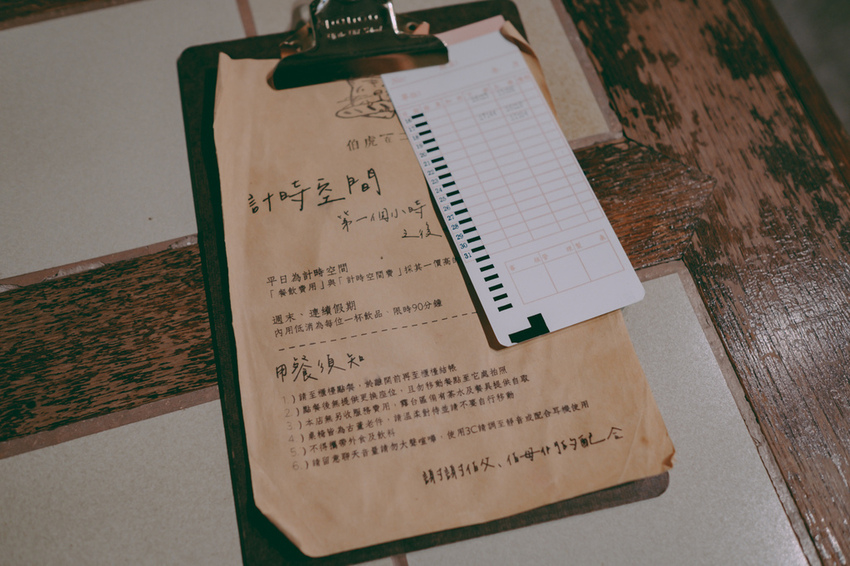 伯虎百
計時空間
第一個小時
之後
平日為計時空間
「餐飲費用」與「計時空間費」採其一價高
週末、連續假期
內用低消為每位一杯飲品，限時90分鐘
用餐須知
1.）請至櫃檯點餐，於離開前再至櫃檯結帳
2.）點餐後無提供更換座位，且勿移動餐點至它處拍照
3.）本店無另收服務費用，露台區備有茶水及餐具提供自取
4.）桌椅皆為古董老件，請溫柔對待座請不要自行移動
5.）不得攜帶外食及飲料
6.）請留意聊天音量請勿大聲喧嘩，使用3C請調至靜音或配合耳機使用
請請伯父、伯母們配合
16
17
18
19
20
21
22
23
24
25
26
27
28
29
30
31